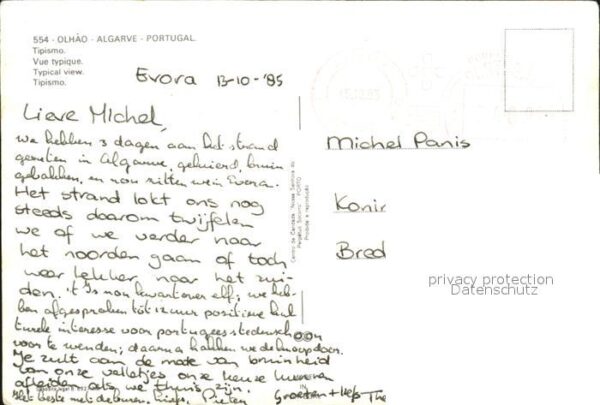 554 - OLHÃO - ALGARVE - PORTUGAL
Tipismo.
Vue typique.
Typical view.
Tipismo.
Evora 13-10-'85
Lieve Michel,
we hebben 3 dagen aan het strand
gezeten in Algarve, geluierd, bruin
gebakken, en nou zitten we in Evora.
Het strand lokt ons nog
steeds daarom twijfelen
we of we verder naar
het noorden gaan of toch
weer lekker naar het zui-
den. 't Is nou kwart over elf; we heb-
ben afgesproken tot 12 uur positieve kul
turele interesse voor portugees stedenschoon
voor te wenden; daarna hakken we de knoop door.
Je zult aan de mate van bruinheid
van onze velletjes onze keuze kunnen
afleiden als we thuis zijn.
Het beste met de buren, liefs, Pieten
Groeten + liefs The
Centro de Caridade "Nossa Senhora do
Perpétuo Socorro" PORTO
Proibida a reprodução
Michel Panis
Konir
Bred
privacy protection
Datenschutz